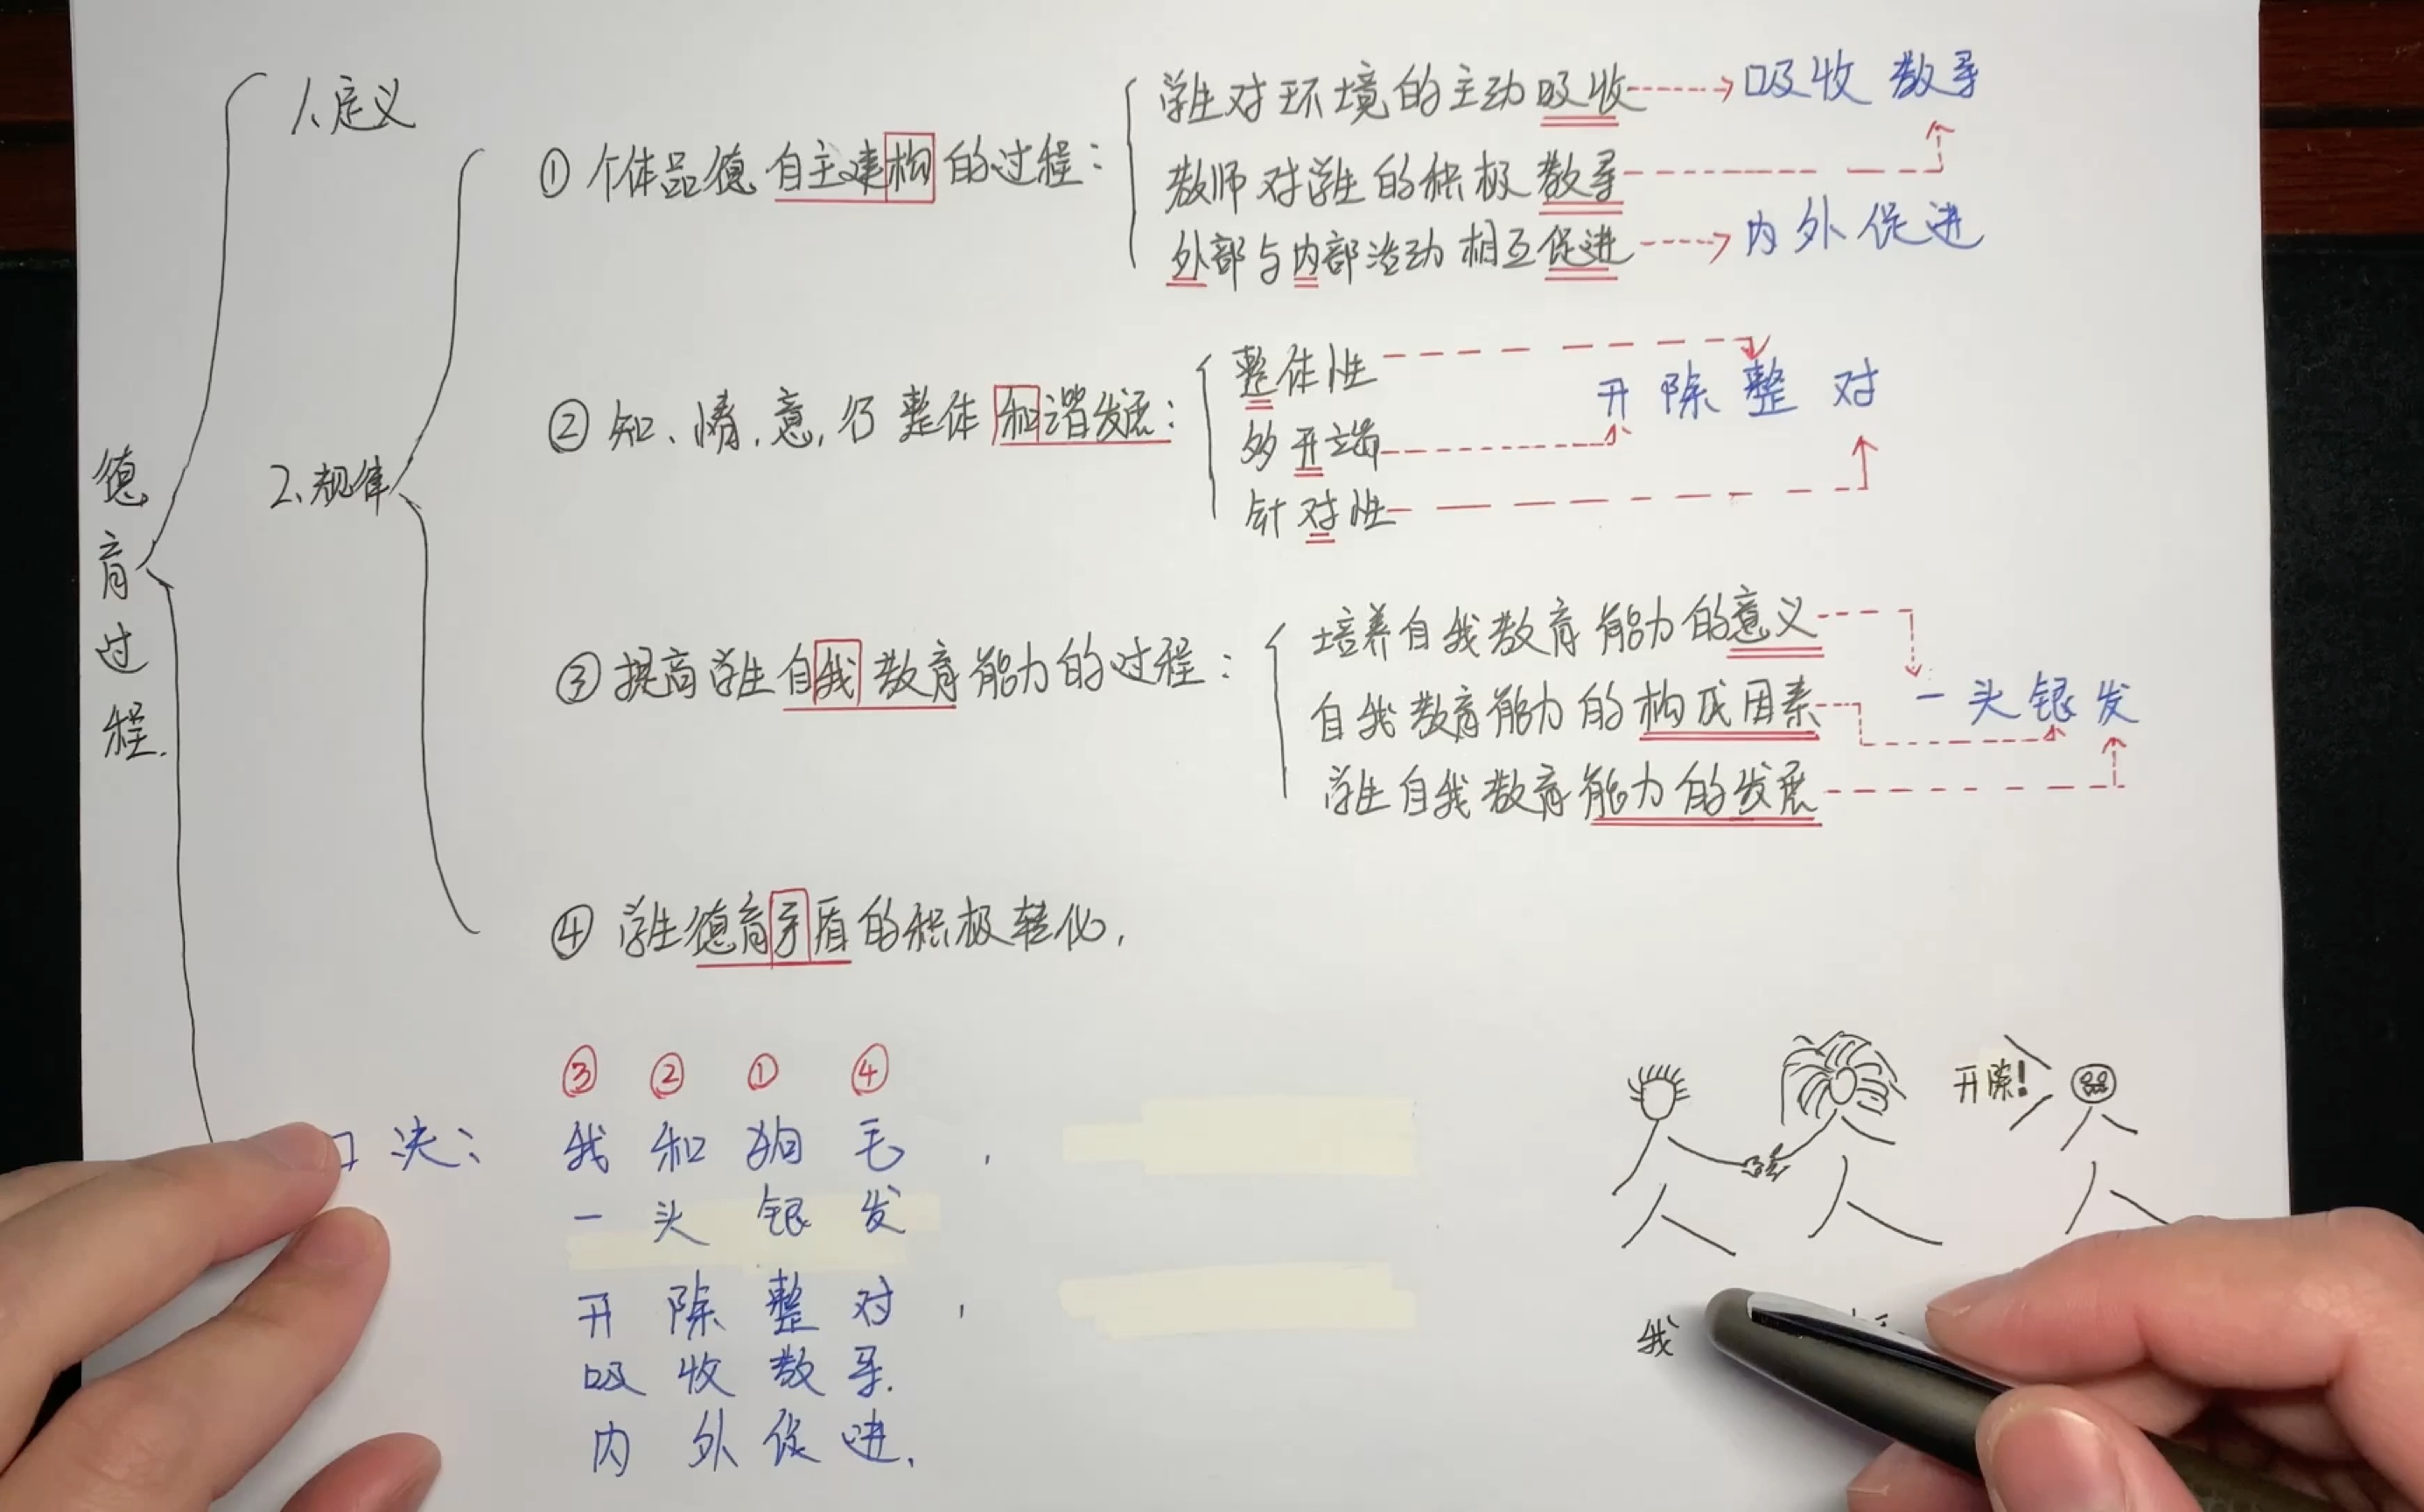 德育过程.
1、定义
2、规律
① 个体品德自主建构的过程：
学生对环境的主动吸收 吸收教导
教师对学生的积极教导
外部与内部活动相互促进 内外促进
② 知、情、意、行整体和谐发展：
整体性
多开端
针对性
开除整对
③ 提高学生自我教育能力的过程：
培养自我教育能力的意义
自我教育能力的构成因素
学生自我教育能力的发展
一头银发
④ 学生德育矛盾的积极转化.
③ ② ① ④
口决： 我和狗毛，
一头银发
开除整对，
吸收教导.
内外促进.
开除！
我